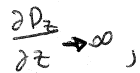 ∂D_z/∂z → ∞ ,